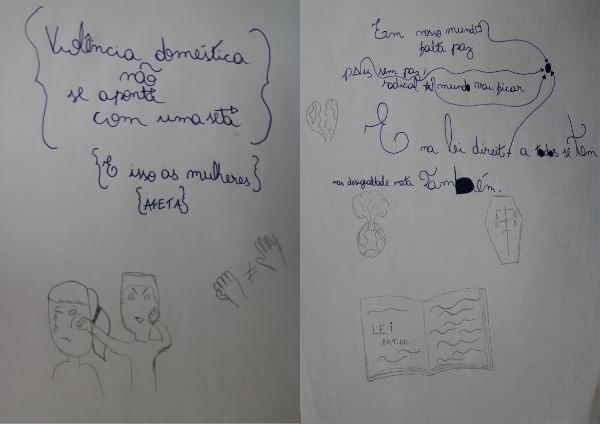 Violência doméstica
não
se aponta
com uma seta
E isso às mulheres
AFETA
Em nosso mundo
falta paz
pois sem paz,
radical o mundo vai ficar
E na lei direito a todos se tem
mas desigualdade mata Também.
LEI
ART.